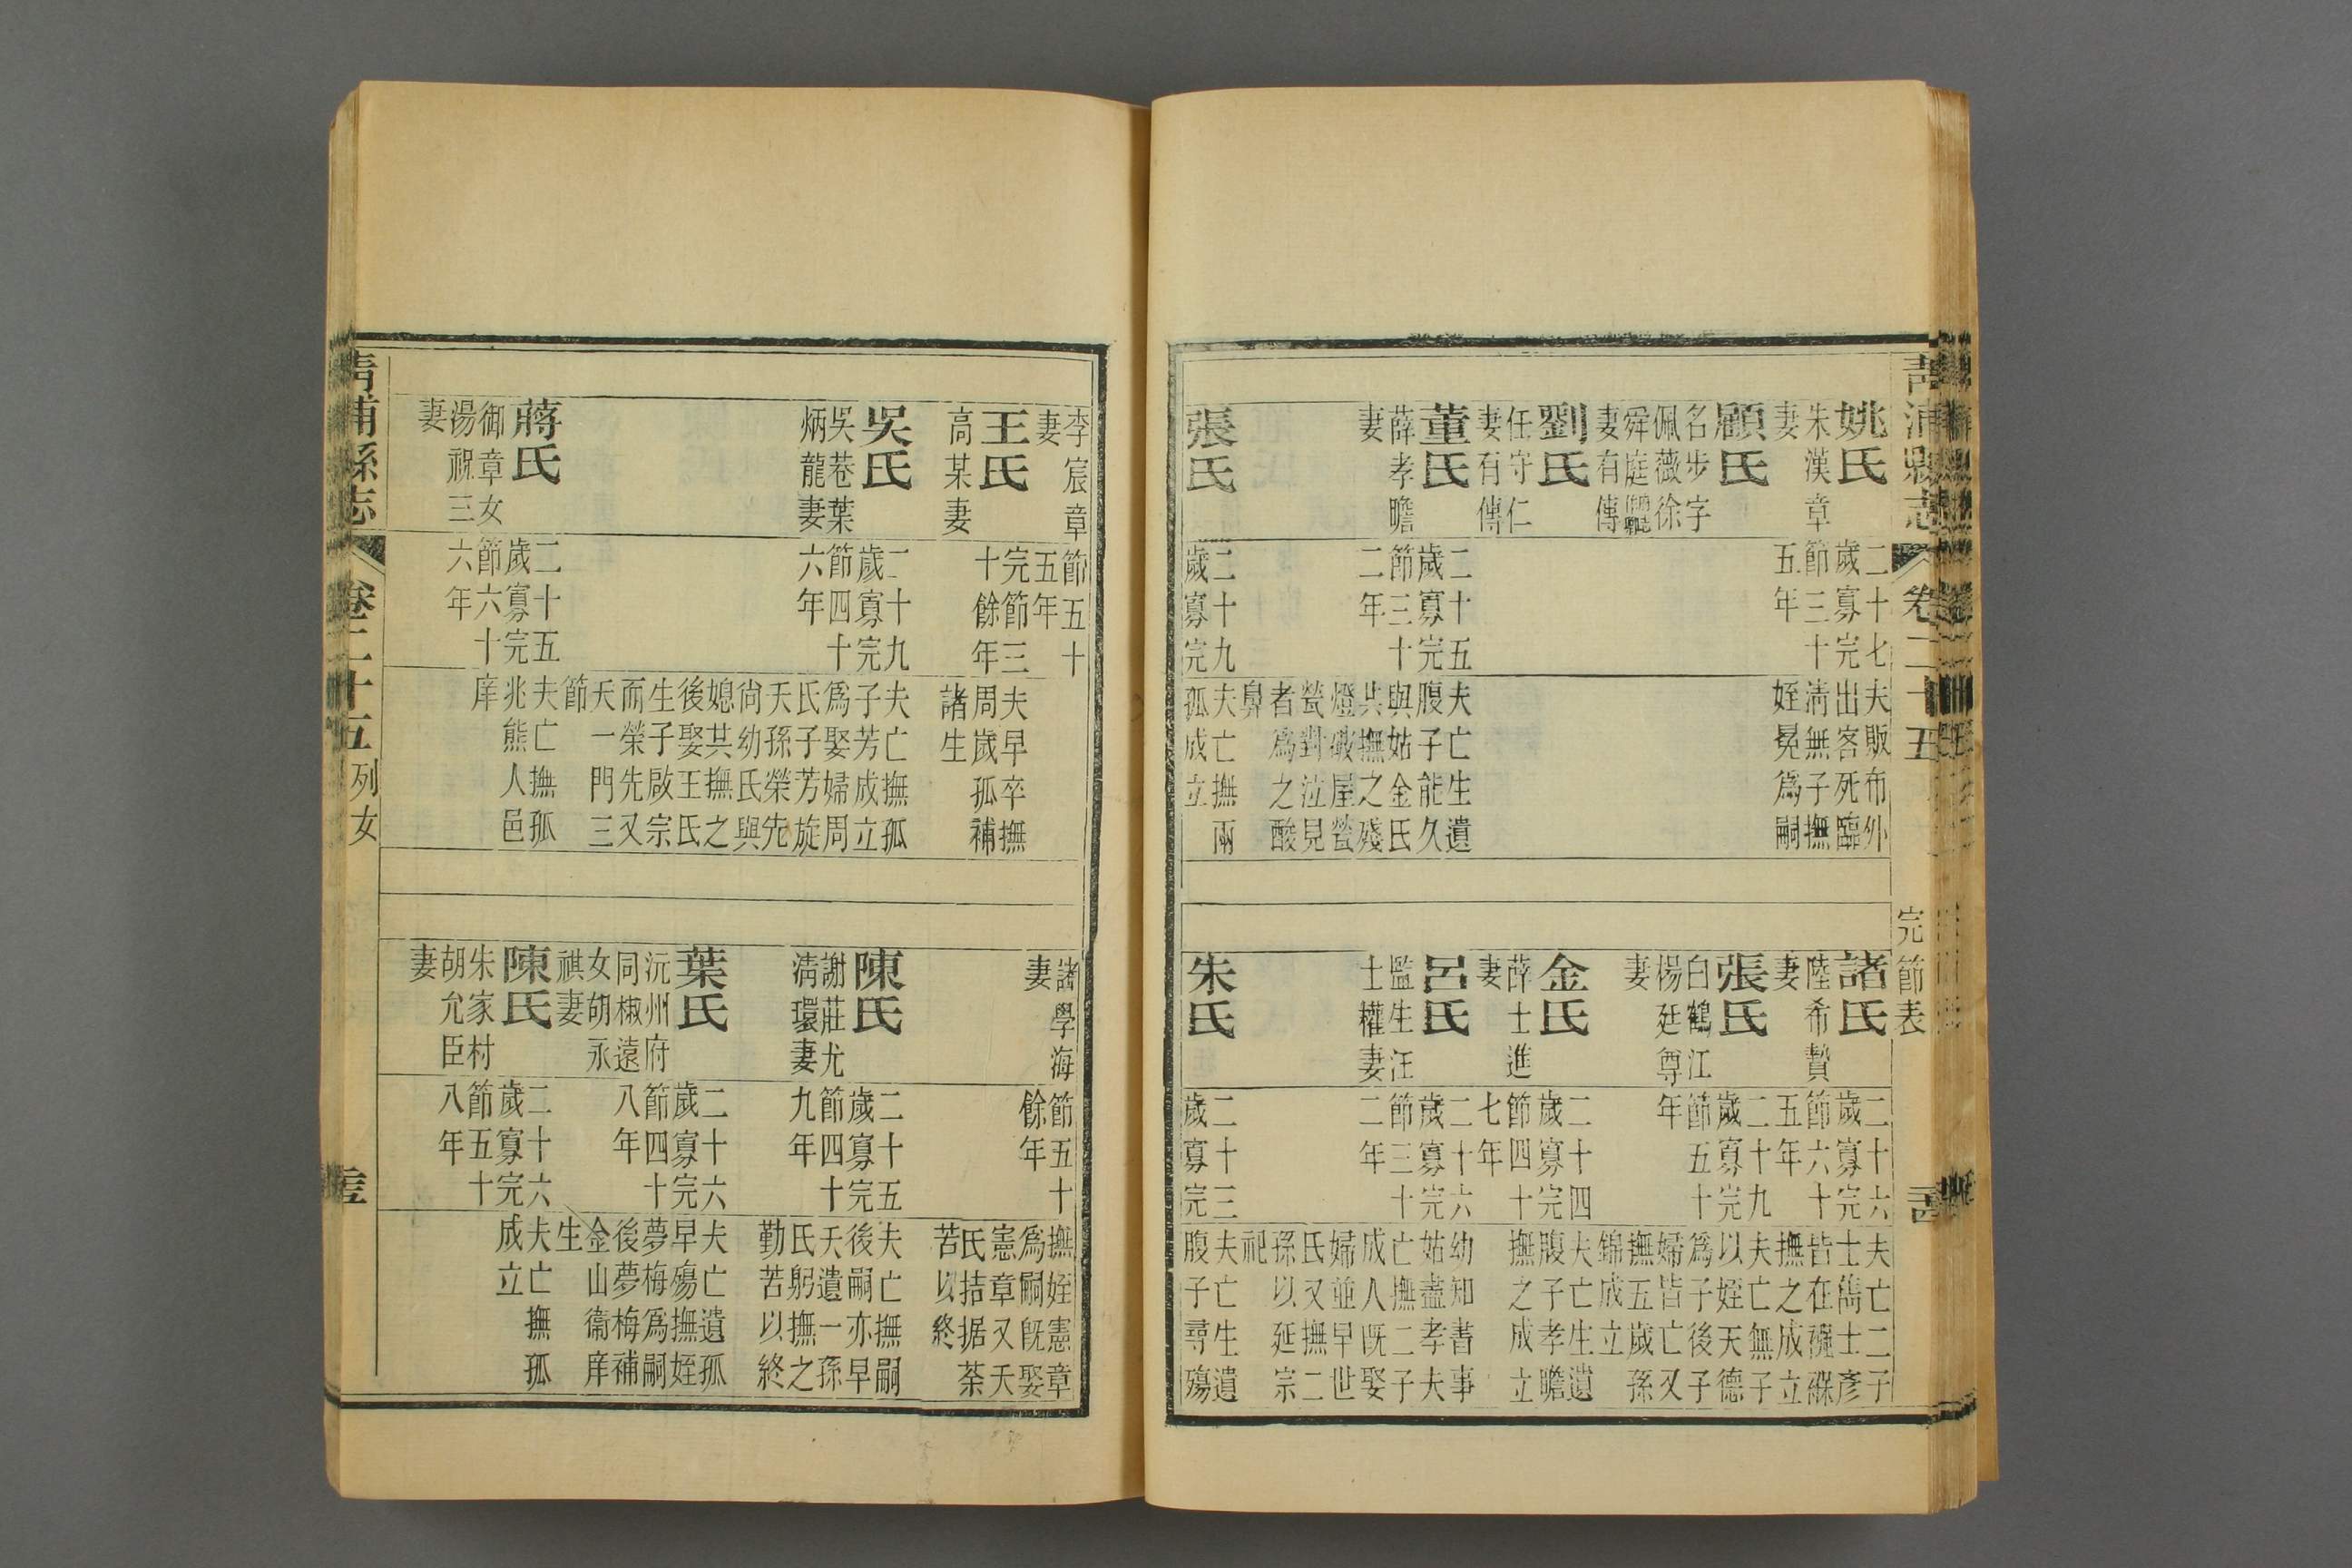 青浦縣志 卷二十五 完節表
姚氏
朱漢章
妻
二十七
歲寡完
節三十
五年
夫販布外
出客死臨
淸無子撫
姪冕爲嗣
顧氏
名步字
佩薇徐
舜庭
妻有傳
劉氏
任守仁
妻有傳
董氏
薛孝瞻
妻
二十五
歲寡完
節三十
二年
夫亡生遺
腹子能久
與姑金氏
共撫之殘
燈破屋煢
煢對泣見
者爲之酸
鼻
張氏
二十九
歲寡完
夫亡撫兩
孤成立
諸氏
陸希贄
妻
二十六
歲寡完
節六十
五年
夫亡二子
士雋士彥
皆在襁褓
撫之成立
張氏
白鶴江
楊廷尊
妻
二十九
歲寡完
節五十
年
夫亡無子
以姪天德
爲子後子
婦皆亡又
撫五歲孫
錦成立
金氏
薛士進
妻
二十四
歲寡完
節四十
七年
夫亡生遺
腹子孝瞻
撫之成立
呂氏
監生汪
士權妻
二十六
歲寡完
節三十
二年
幼知書事
姑盡孝夫
亡撫二子
成人旣娶
婦並早世
氏又撫二
孫以延宗
祀
朱氏
二十三
歲寡完
夫亡生遺
腹子尋殤
李宸章
妻
節五十
五年
王氏
高某妻
完節三
十餘年
夫早卒撫
周歲孤補
諸生
吳氏
吳巷葉
炳龍妻
二十九
歲寡完
節四十
六年
夫亡撫孤
子芳成立
爲娶婦周
氏子芳旋
夭孫榮先
尙幼氏與
媳共撫之
後娶王氏
生子啟宗
而榮先又
夭一門三
節
蔣氏
御章女
湯祝三
妻
二十五
歲寡完
節六十
六年
夫亡撫孤
兆熊人邑
庠
諸學海
妻
節五十
餘年
撫姪憲章
爲嗣旣娶
憲章又夭
氏拮据荼
苦以終
陳氏
謝莊尤
淸環妻
二十五
歲寡完
節四十
九年
夫亡撫嗣
後嗣亦早
夭遺一孫
氏躬撫之
勤苦以終
葉氏
沅州府
同椒遠
女胡永
祺妻
二十六
歲寡完
節四十
八年
夫亡遺孤
早殤撫姪
夢梅爲嗣
後夢梅補
金山衞庠
生
陳氏
朱家村
胡允臣
妻
二十六
歲寡完
節五十
八年
夫亡撫孤
成立
青浦縣志 卷二十五 列女